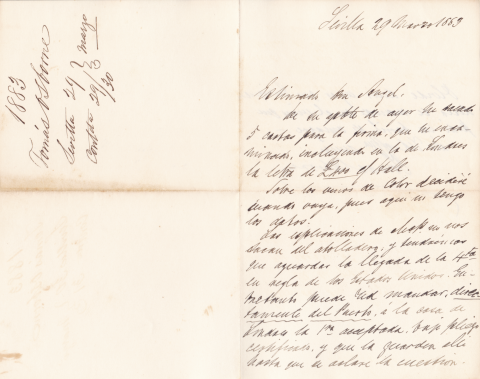 1883
Tomás Osborne
Sevilla 29 Marzo
Contda 29/3
/30
Sevilla 29 Marzo 1883
Estimado Don Angel.
En mi gotte de ayer he sacado
5 cartas para la firma, que he
incluyendo en la de Londres
la letra de Enos of Hall.
Sobre los vinos de color decidiré
cuando vaya, pues aquí no tengo
los datos.
Las esplicaciones de no nos
sacan del atolladero, y tendremos
que aguardar la llegada de la 4ta
en regla de los Estados Unidos. En-
tretanto puede Ud mandar, direc-
tamente del Puerto, á la casa de
Londres la 1ra aceptada, bajo pliego
certificado, y que la guarden allí
hasta que se aclare la cuestion.